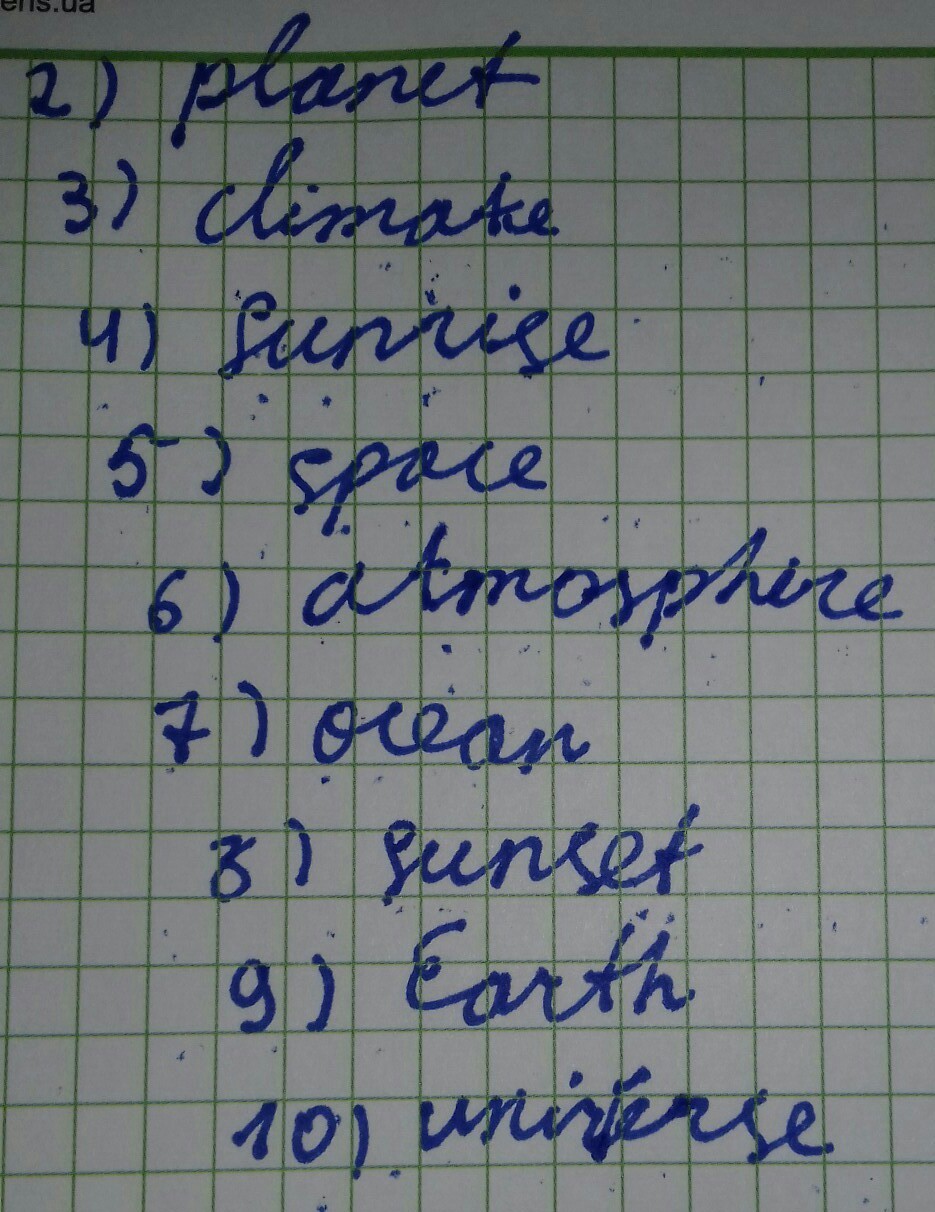 ens.ua
2) planet
3) climate
4) sunrise
5) space
6) atmosphere
7) ocean
8) sunset
9) Earth
10) universe